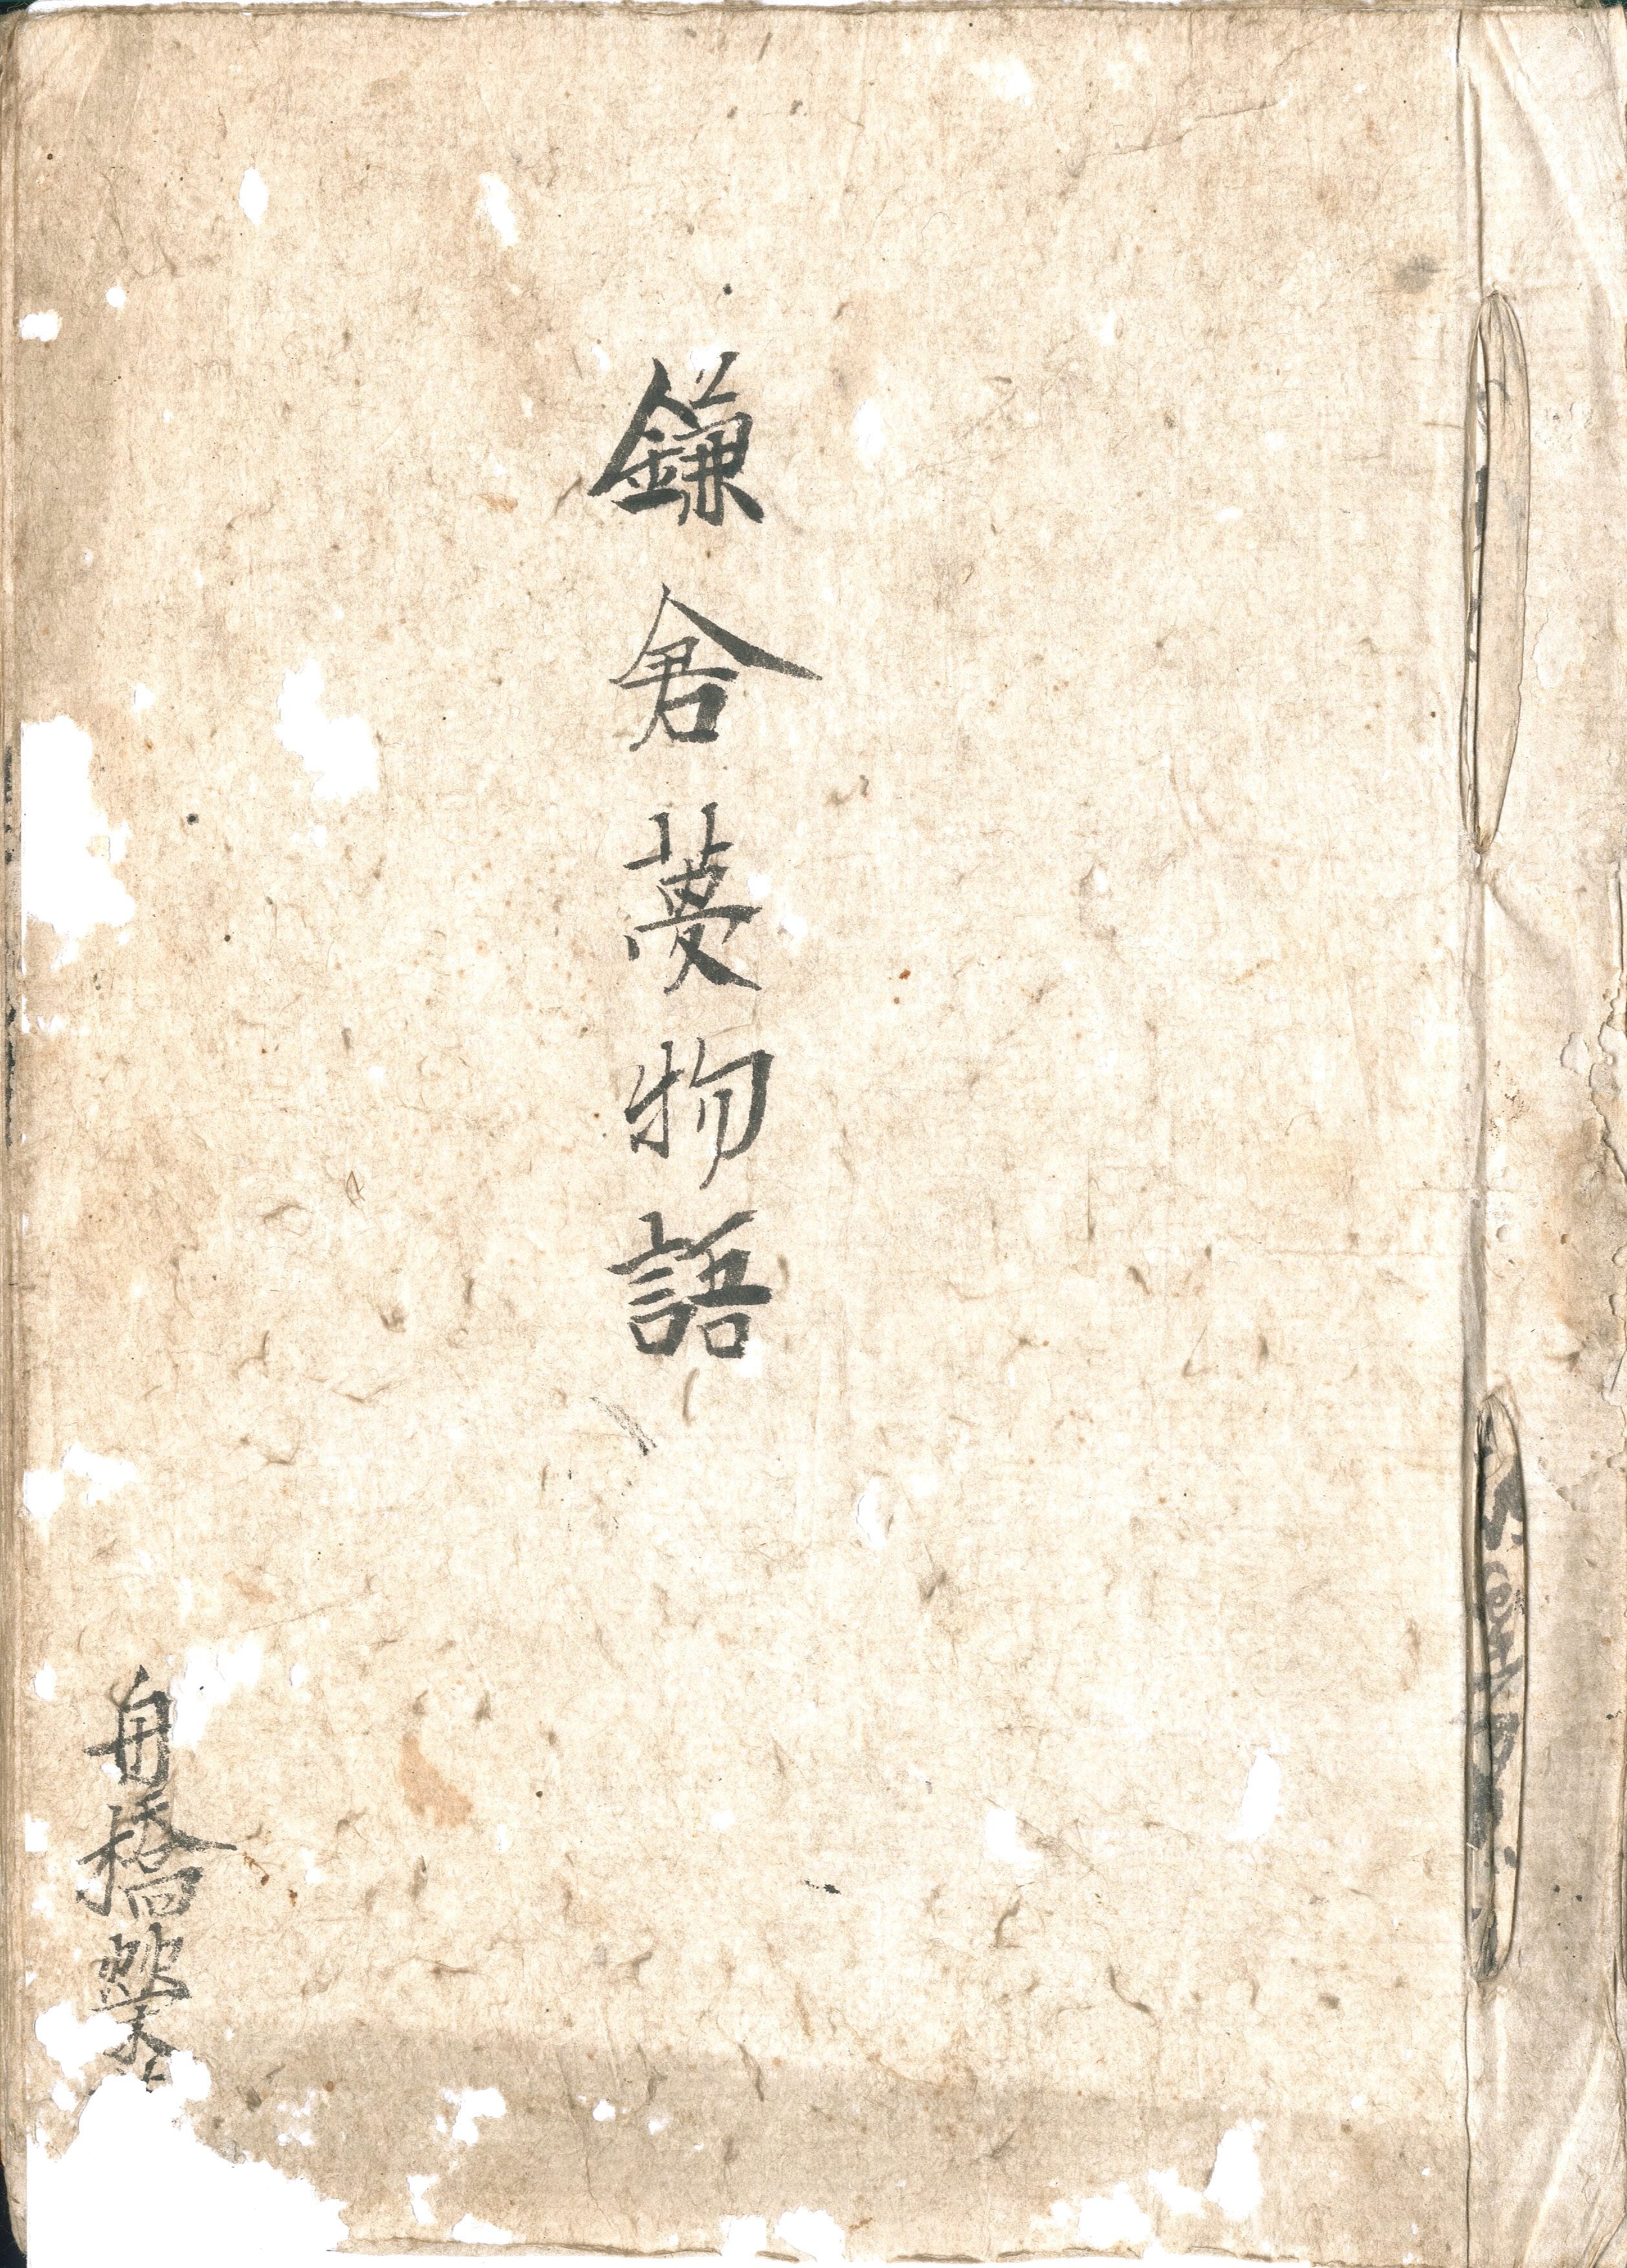 鎌倉夢物語
舟橋榮